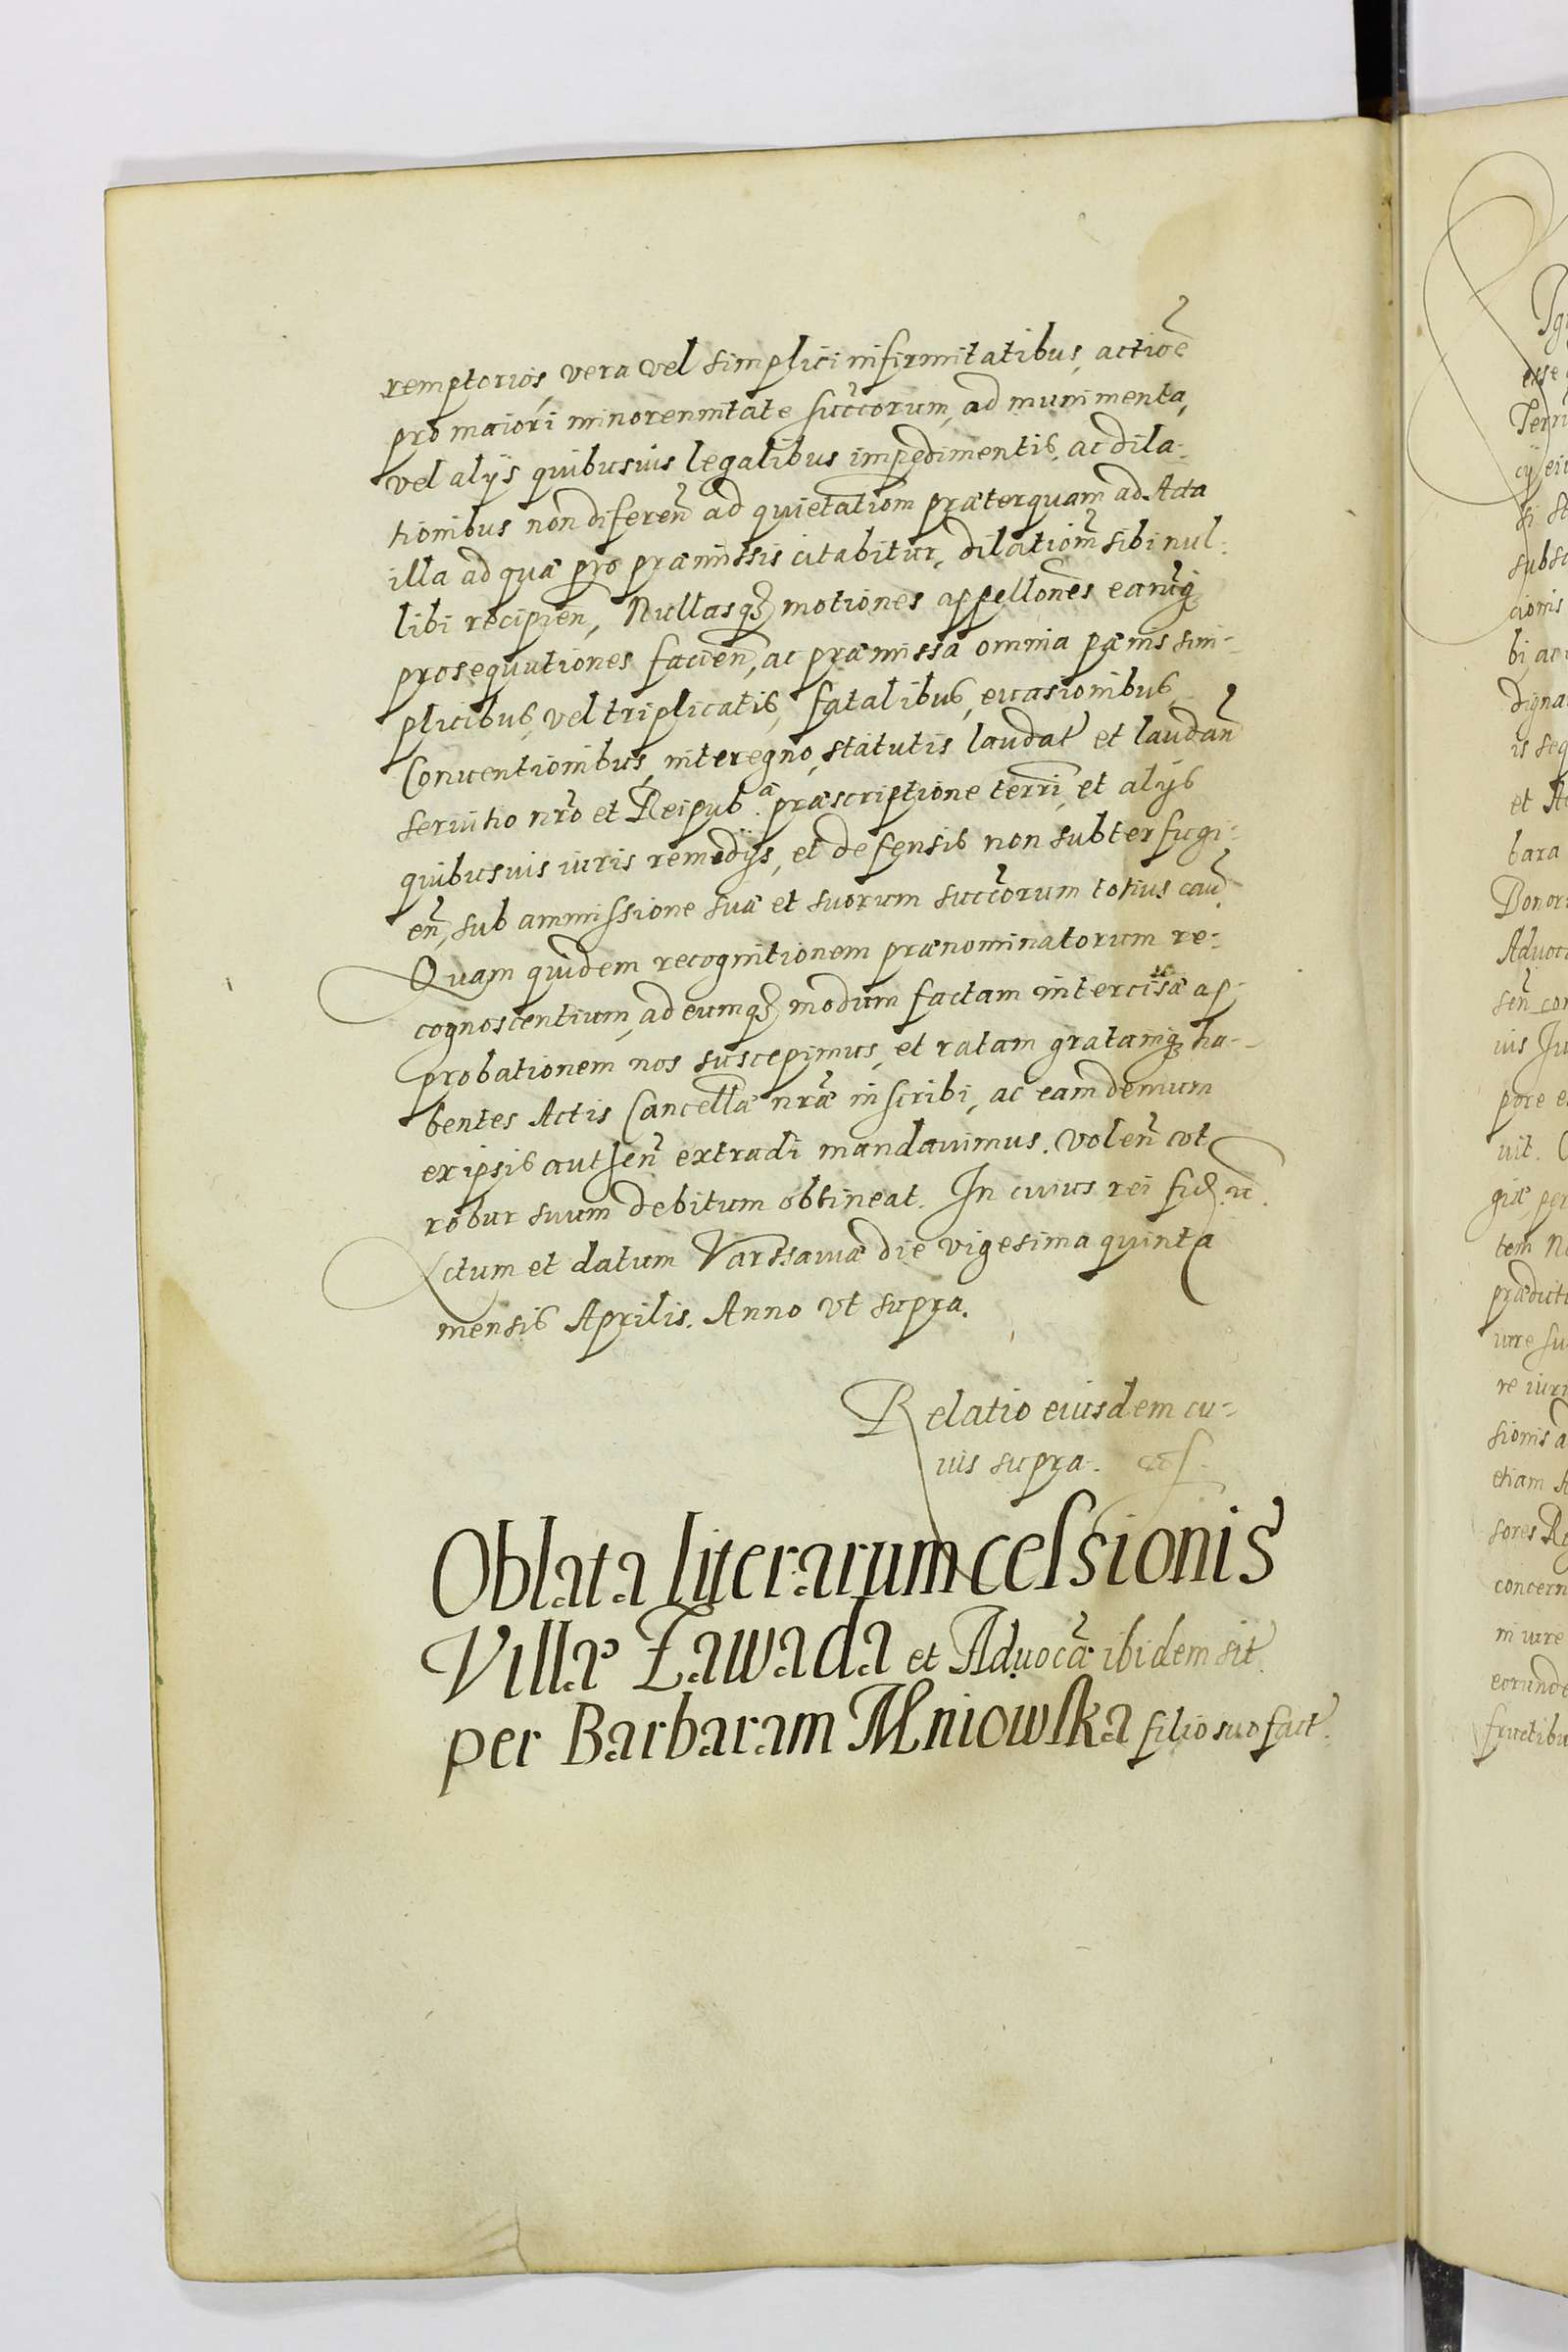 remptorios, vera vel simplici infirmitatibus, actiõe
pro maiori minorennitate succorum, ad munimenta,
vel alijs quibusuis legalibus impedimentis, ac dila-
tionibus non diferen̄ ad quietationem præterquam ad Acta
illa ad quæ pro præmissis citabitur, dilation̄ sibi nul-
libi recipien̄, Nullasq3 motiones appellones earūq3
prosequutiones facien̄, ac præmissa omnia pænis sim-
plicibus, vel triplicatis, fatalibus, euasionibus,
Conuentionibus, interegno, statutis laudat̄ et laudan̄
seruitio nr̄o et Reipub.ᵃ præscriptione terrī, et alijs
quibusuis iuris remedijs, et defensis non subterfugi-
en̄, sub ammissione suæ et suorum succorum totius cau̅.
Quam quidem recognitionem prænominatorum re-
cognoscentium, ad eumq3 modum factam intercisæ ap-
probationem nos suscepimus, et ratam gratamq3 ha-
bentes Actis Cancellæ nr̄æ inscribi, ac eam demum
ex ipsis authen̄ extradi mandauimus. Volen̄ vt
robur suum debitum obtineat. In cuius rei fid. &c.
Actum et datum Varssauiæ die vigesima quinta
mensis Aprilis. Anno vt supra.
Relatio eiusdem cu-
uis supra.
Oblata literarum cessionis
Villæ Zawada et Aduocaæ ibidem sit.
per Barbaram Mniowska filio suo fact̄.
esse
cij
si
subsc
cionis
bi, ac
digna
is seq
et A
bara
Bonor
Aduoca
sen̄ con
ius Ju
pore e
uit.
giæ, per
tem N
prædict
iure su
re iuri
sionis a
etiam A
sores Re
concern
in iure
eorunde
fructibu